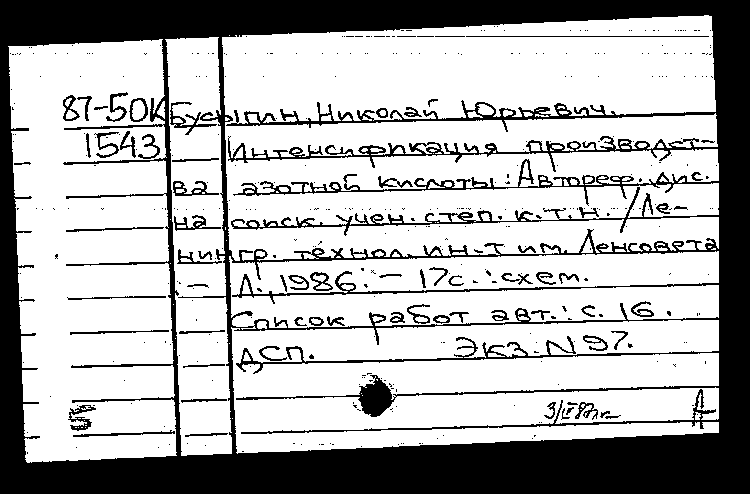 87-50К Бусыгин, Николай Юрьевич.
1543 Интенсификация производст-
ва азотной кислоты: Автореф. дис.
на соиск. учен. степ. к.т.н. / Ле-
нингр. технол. ин-т им. Ленсовета
.- Л., 1986. - 17с. : схем.
Список работ авт.: с. 16.
ДСП. Экз. N 97.
5 А